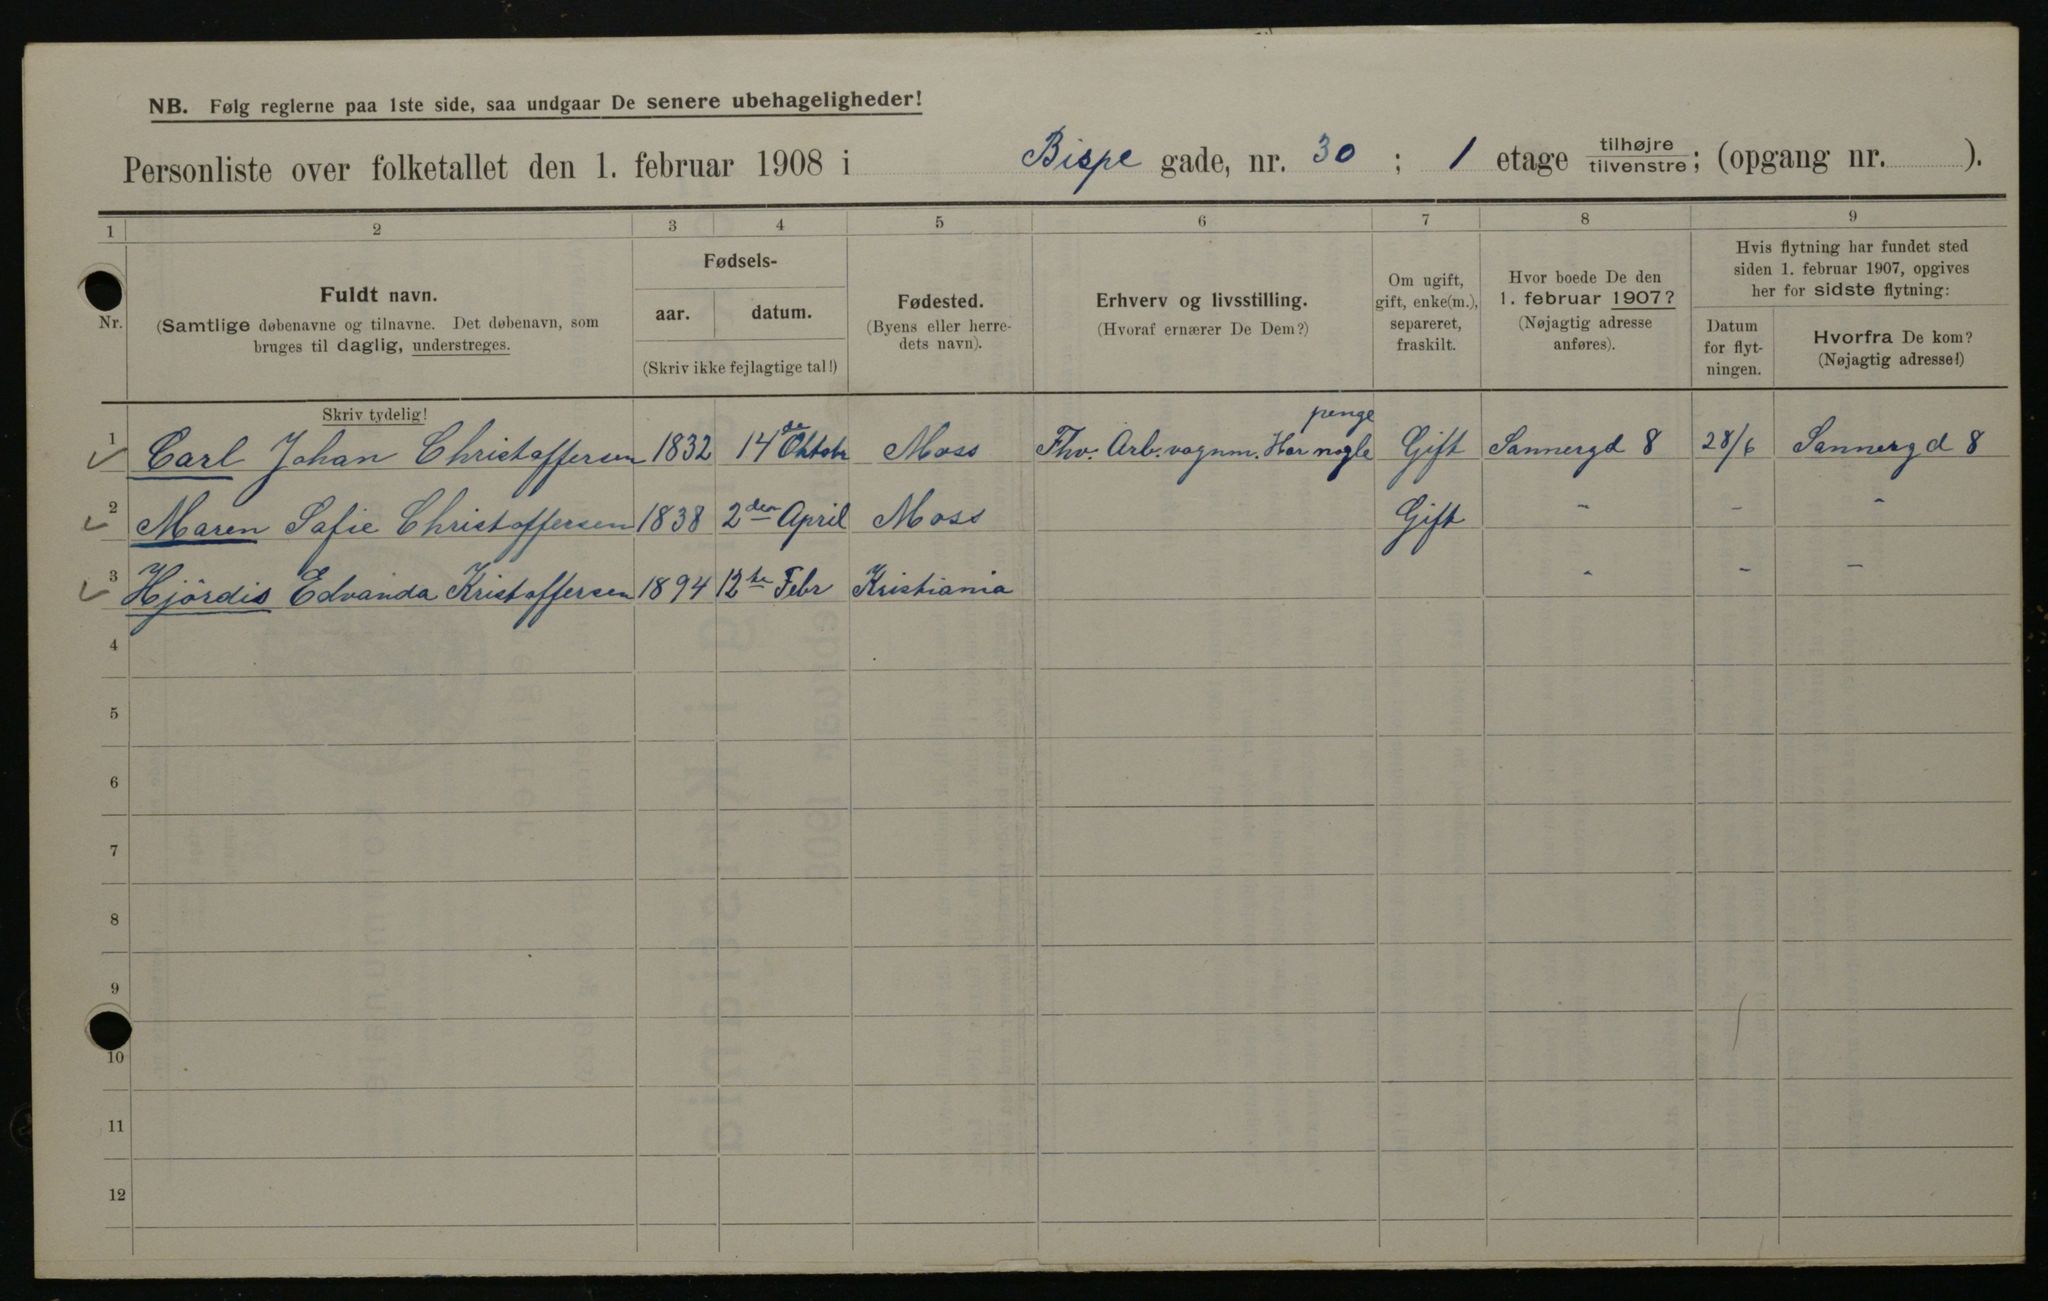 NB. Følg reglerne paa 1ste side, saa undgaar De senere ubehageligheder!
Personliste over folketallet den 1. februar 1908 i Bispe gade, nr. 30 ; 1 etage tilhøjre / tilvenstre ; (opgang nr. ).
1 2 3 4 5 6 7 8 9
Nr.
Fuldt navn.
(Samtlige døbenavne og tilnavne. Det døbenavn, som
bruges til daglig, understreges.
Skriv tydelig!
Fødsels-
aar. datum.
(Skriv ikke fejlagtige tal!)
Fødested.
(Byens eller herre-
dets navn).
Erhverv og livsstilling.
(Hvoraf ernærer De Dem?)
Om ugift,
gift, enke(m.),
separeret,
fraskilt.
Hvor boede De den
1. februar 1907?
(Nøjagtig adresse
anføres).
Hvis flytning har fundet sted
siden 1. februar 1907, opgives
her for sidste flytning:
Datum
for flyt-
ningen.
Hvorfra De kom?
(Nøjagtig adresse!)
penge
1 Carl Johan Christoffersen 1832 14 de Oktobr Moss Fhv. Arb. vognm. Har nogle Gift Sannergd 8 28/6 Sannergd 8
2 Maren Safie Christoffersen 1838 2den April Moss Gift " - "
3 Hjördis Edvanda Kristoffersen 1894 12te Febr Kristiania " - -
4
5
6
7
8
9
10
11
12